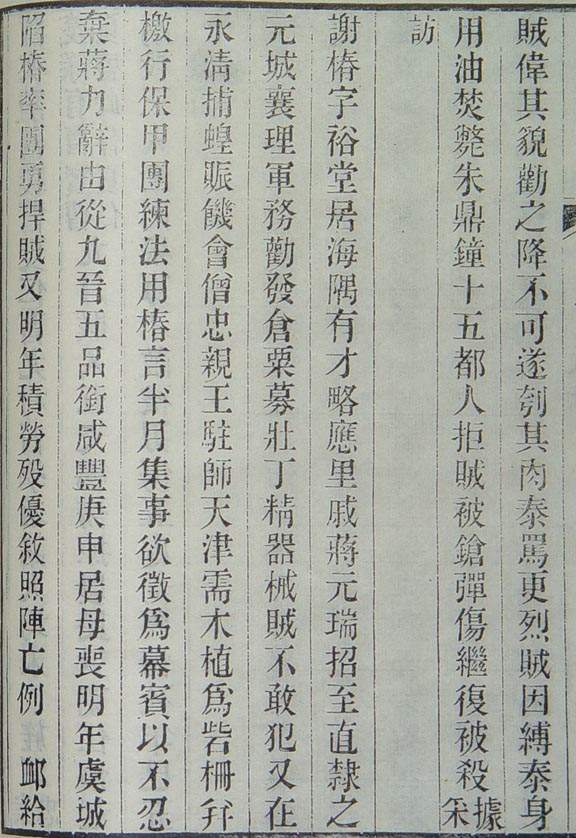 賊偉其貌勸之降不可遂刳其肉泰罵更烈賊因縛泰身
用油焚斃朱鼎鐘十五都人拒賊被鎗彈傷繼復被殺據采
訪
謝椿字裕堂居海隅有才略應里戚蔣元瑞招至直隸之
元城襄理軍務勸發倉粟募壯丁精器械賊不敢犯又在
永清捕蝗賑饑會僧忠親王駐師天津需木植爲砦柵幷
檄行保甲團練法用椿言半月集事欲徵爲幕賓以不忍
棄蔣力辭由從九晉五品銜咸豐庚申居母喪明年虞城
陷椿率團勇捍賊又明年積勞歿優敘照陣亡例 卹給